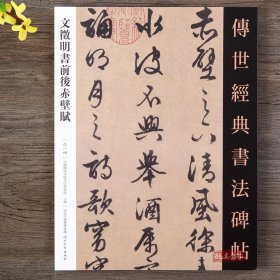 傳世經典書法碑帖
赤壁之下清風徐
水波不興舉酒屬
誦明月之詩歌窈
文徵明書前後赤壁賦